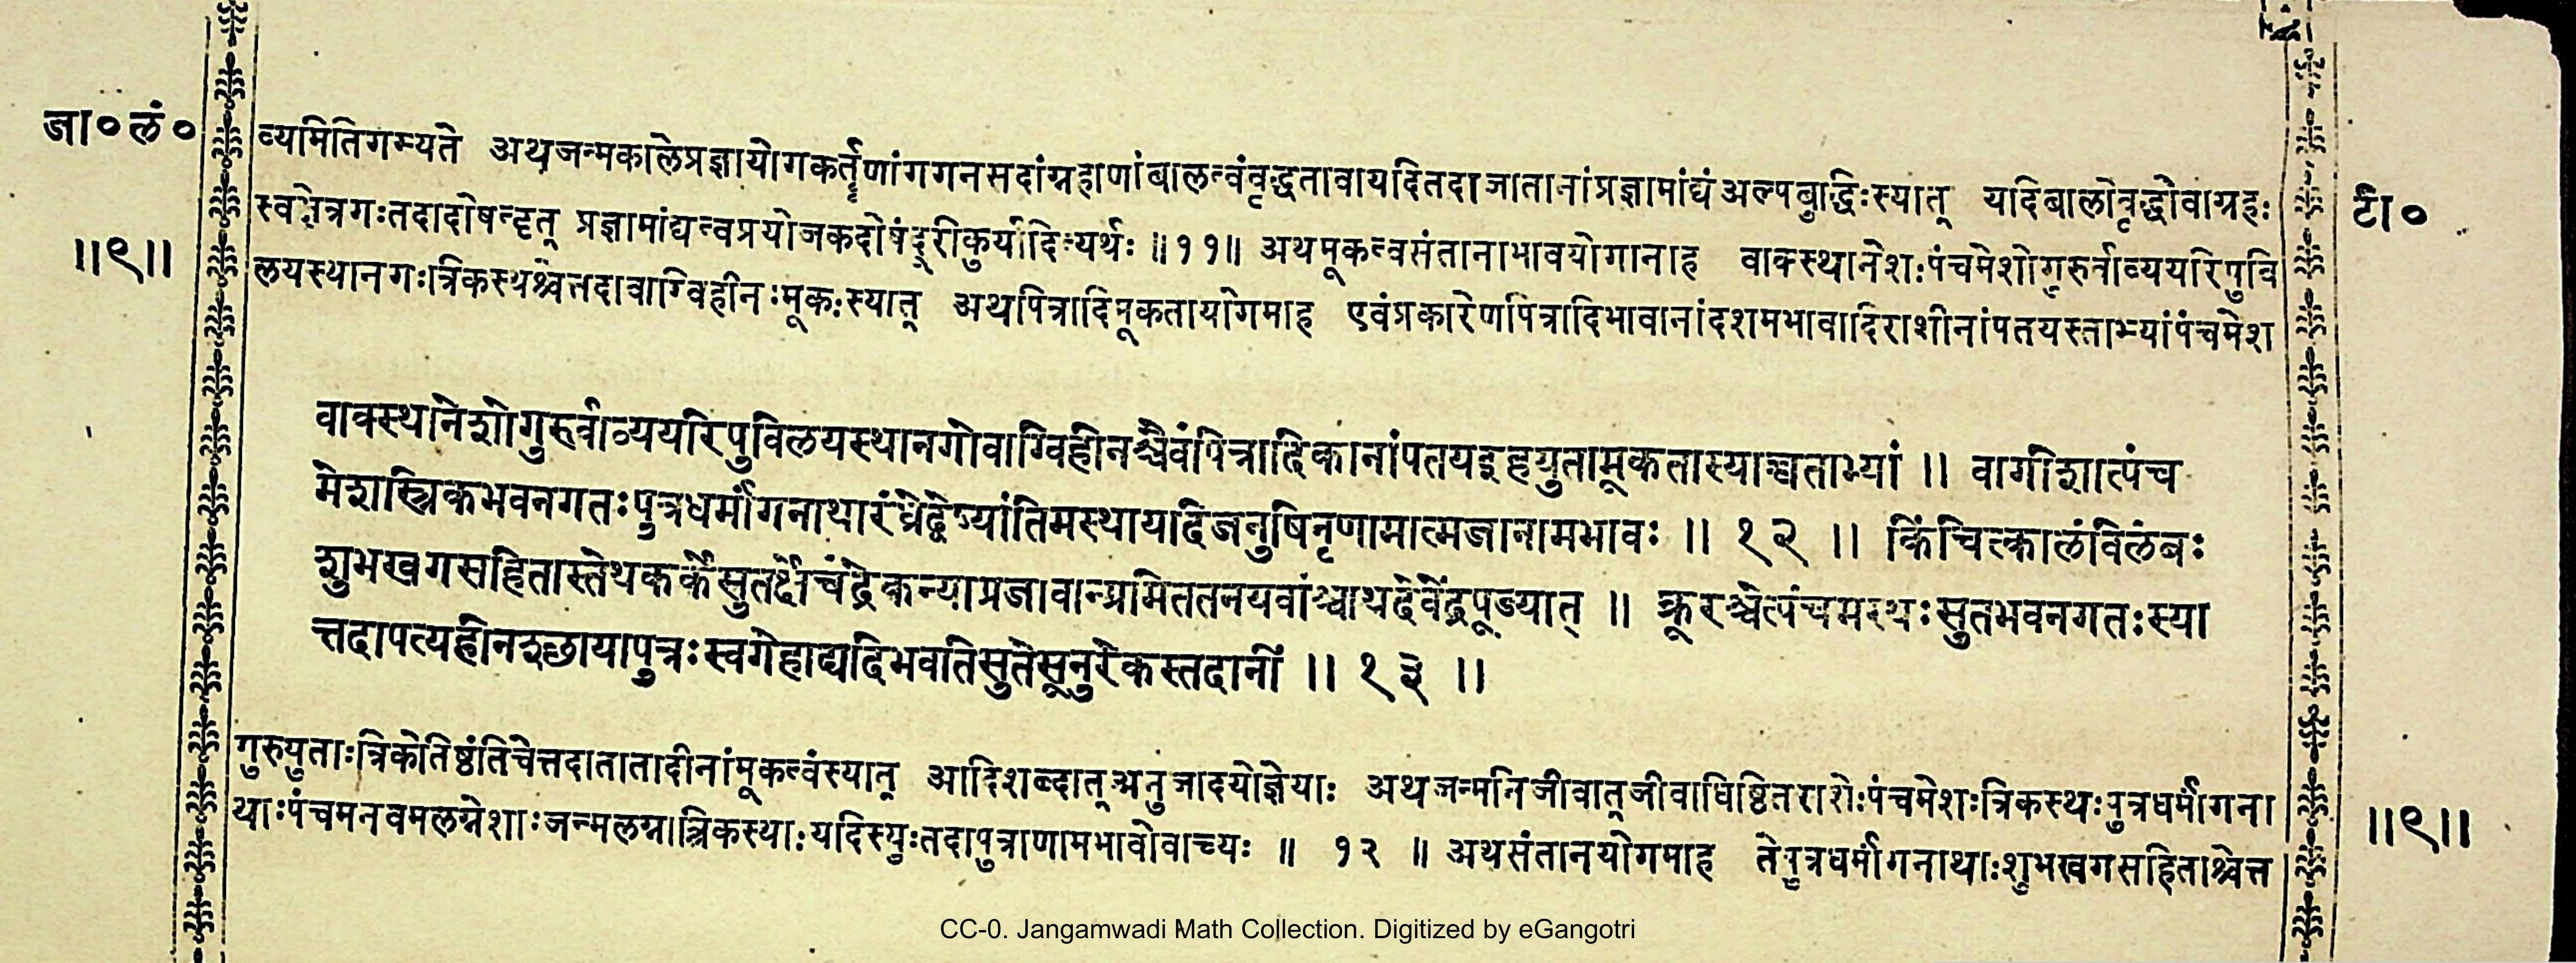 जा०लं०
॥९॥
व्यमितिगम्यते अथजन्मकालेप्रज्ञायोगकर्तॄणांगगनसदांग्रहाणांबालत्वंवृद्धतावायदितदाजातानांप्रज्ञामांद्यंअल्पबुद्धिःस्यात् यदिबालोवृद्धोवाग्रहः
स्वक्षेत्रगःतदादोषहृत् प्रज्ञामांद्यत्वप्रयोजकदोषंदूरीकुर्यादित्यर्थः ॥११॥ अथमूकत्वसंतानाभावयोगानाह वाक्स्थानेशःपंचमेशोगुरुर्वाव्ययरिपुवि
लयस्थानगःत्रिकस्थश्चेत्तदावाग्विहीनःमूकःस्यात् अथपित्रादिमूकतायोगमाह एवंप्रकारेणपित्रादिभावानांदशमभावादिराशीनांपतयस्ताभ्यांपंचमेश
वाक्स्थानेशोगुरुर्वाव्ययरिपुविलयस्थानगोवाग्विहीनश्चैवंपित्रादिकानांपतयइहयुतामूकतास्याच्चताभ्यां ॥ वागीशात्पंच
मेशस्त्रिकभवनगतःपुत्रधर्मांगनाथारंध्रेद्वेष्यांतिमस्थायदिजनुषिनृणामात्मजानामभावः ॥ १२ ॥ किंचित्कालंविलंबः
शुभखगसहितास्तेथकर्केसुतर्क्षेचंद्रेकन्याप्रजावान्प्रमिततनयवांश्चाथदेवेंद्रपूज्यात् ॥ क्रूरश्चेत्पंचमस्थःसुतभवनगतःस्या
त्तदापत्यहीनश्छायापुत्रःस्वगेहाद्यदिभवतिसुतेसूनुरेकस्तदानीं ॥ १३ ॥
गुरुयुताःत्रिकेतिष्ठंतिचेत्तदातातादीनांमूकत्वंस्यात् आदिशब्दात्अनुजादयोज्ञेयाः अथजन्मनिजीवात्जीवाधिष्ठितराशेःपंचमेशःत्रिकस्थःपुत्रधर्मांगना
थाःपंचमनवमलग्नेशाःजन्मलग्नात्त्रिकस्थाःयदिस्युःतदापुत्राणामभावोवाच्यः ॥ १२ ॥ अथसंतानयोगमाह तेपुत्रधर्मांगनाथाःशुभखगसहिताश्चेत्त
टी०
॥९॥
CC-0. Jangamwadi Math Collection. Digitized by eGangotri